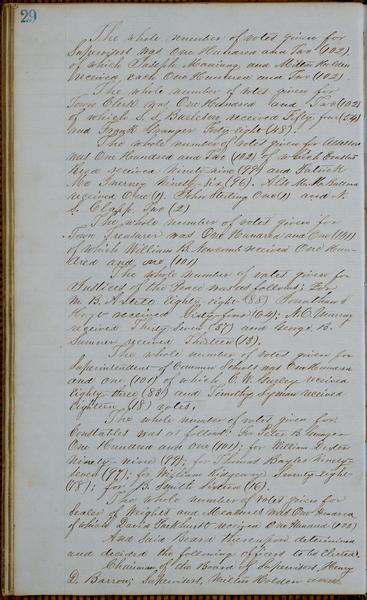 29
The whole number of votes given for
Supervisors was One Hundred and Two (102)
of which Joseph Manning and Milton Holden
received each One Hundred and Two (102).
The whole number of votes given for
Town Clerk was One Hundred and Two (102)
of which S. S. received Fifty four (54)
and Frank Granger Forty-eight (48).
The whole number of votes given for Assessors
was One Hundred and Two (102) of which
received Ninety-nine (99) and Patrick
Mc Inerney Ninety six (96). Also
received One (1). John Sterling One (1) and
Clapp, Two (2)
The whole number of votes given for
Town Treasurer was One Hundred and One (101)
of which William B. Newcomb received One Hun-
dred and one (101)
The whole number of votes given for
Justices of the Peace was as follows; For
M. B. Eighty eight (88) Jonathan S
Hoyt received Sixty-four (64); N. C. Murray
received Thirty Seven (37) and George B.
Sumner received Thirteen (13).
The whole number of votes given for
Superintendent of Common Schools was One Hundred
and one (101) of which C. W. received
Eighty-three (83) and Timothy Lyman received
Eighteen (18) votes.
The whole number of votes given for
Constables was as follows; for Peter B
One Hundred and One (101); for William
Ninety-nine (99); for Thomas Bayles Ninety-
Seven (97); for William Ridgeway Seventy-eight
(78); for B. Smith Sixteen (16).
The whole number of votes given for
Sealer of Weights and Measures was One Hundred
of which David Parkhurst received One Hundred (100)
And Said Board thereupon determined
and decided the following officers to be elected.
Chairman of the Board of Supervisors, Henry
D. Barron; Supervisors, Milton Holden and